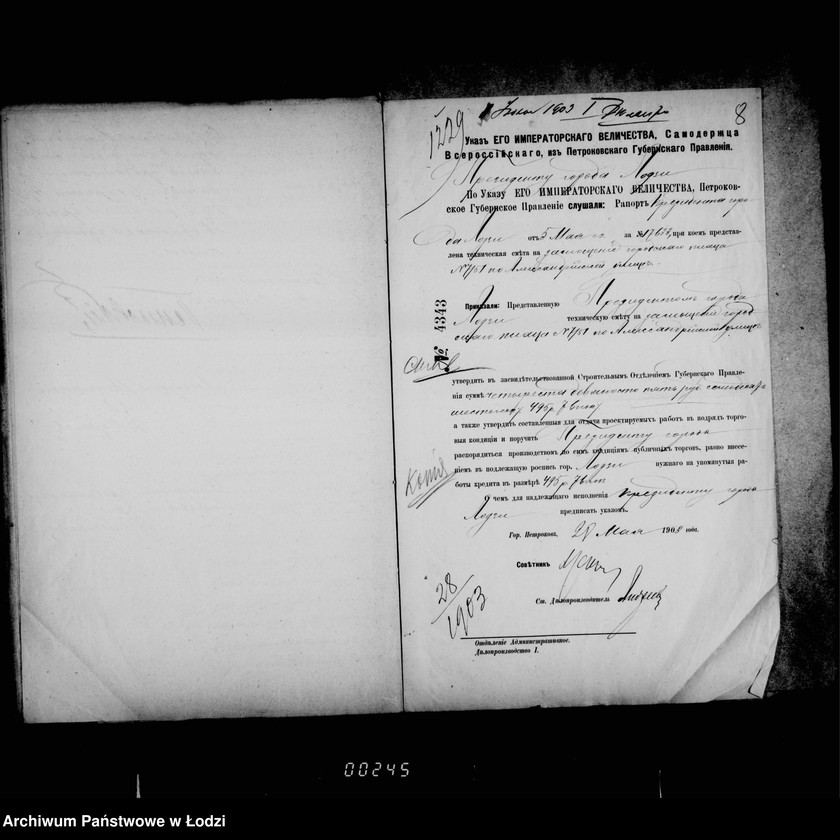 1229
1903 I
8
Указъ ЕГО ИМПЕРАТОРСКАГО ВЕЛИЧЕСТВА, Самодержца
Всероссійскаго, изъ Петроковскаго Губернскаго Правленія.
Президенту города Лодзи
По Указу ЕГО ИМПЕРАТОРСКАГО ВЕЛИЧЕСТВА, Петроков-
ское Губернское Правленіе слушали: Рапортъ Президента горо
да Лодзи отъ 5 Мая за № при коемъ представ-
лена техническая смѣта на замощеніе городскаго плаца
№ 7/51 по Александрійской улицѣ.
№ 4343
Приказали: Представленную Президентомъ города
Лодзи техническую смѣту на замощеніе город
скаго плаца № 7/51 по Александрійской улицѣ
утвердить въ засвидѣтельствованной Строительнымъ Отдѣленіемъ Губернскаго Правле-
нія суммѣ четыреста девяносто пять руб. семьдесятъ
495 р.
а также утвердить составленныя для отдачи проектируемыхъ работъ въ подрядъ торго-
выя кондиціи и поручить Президенту города
распорядиться производствомъ по симъ кондиціямъ публичныхъ торговъ, равно внесе-
ніемъ въ подлежащую роспись гор. Лодзи нужнаго на упомянутыя ра-
боты кредита въ размѣрѣ 495 р.
Копія
О чемъ для надлежащаго исполненія Президенту города
Лодзи предписать указомъ.
Гор. Петроковъ, 28 Мая 190 года.
Совѣтникъ
Ст. Дѣлопроизводитель
28/1903
Отдѣленіе Административное.
Дѣлопроизводство I.
00245
Archiwum Państwowe w Łodzi